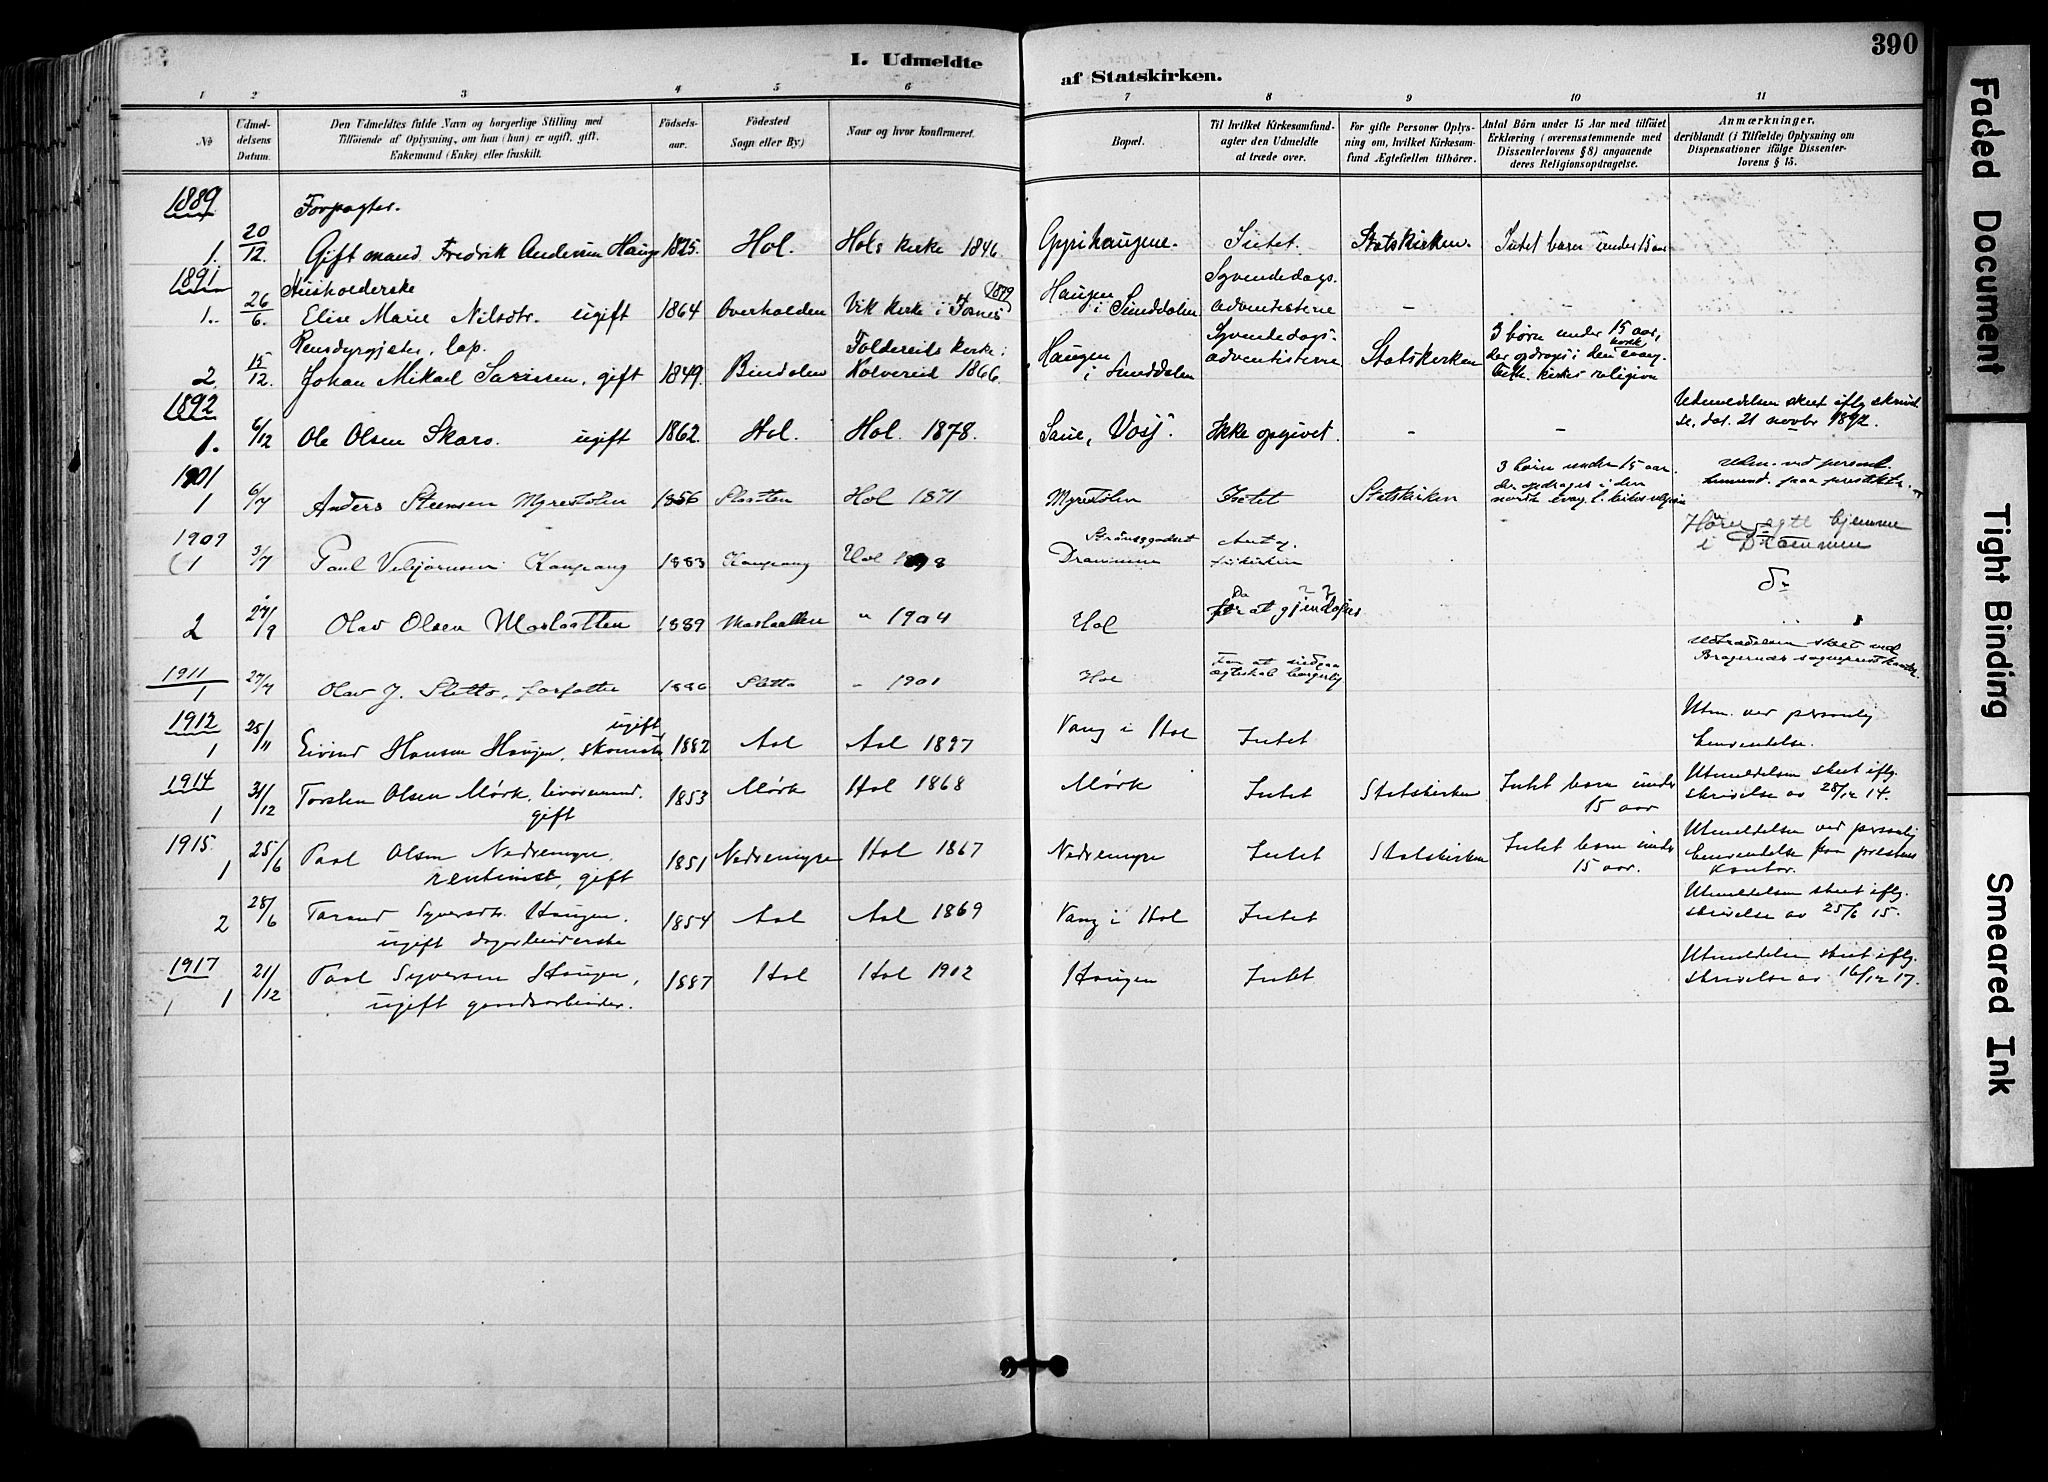 390
I. Udmeldte af Statskirken.
1 2 3 4 5 6 7 8 9 10 11
No
Udmeldelsens Datum.
Den Udmeldtes fulde Navn og borgerlige Stilling med Tilföiende af Oplysning, om han (hun) er ugift, gift. Enkemand (Enke) eller fraskilt.
Födselsaar.
Födested Sogn eller By)
Naar og hvor konfirmeret.
Bopæl.
Til hvilket Kirkesamfundagter den Udmeldte at træde over.
For gifte Personer Oplysning om, hvilket Kirkesamfund Ægtefællen tilhörer.
Antal Börn under 15 Aar med tilföiet Erklæring (overensstemmende med Dissenterlovens § 8) angaaende deres Religionsopdragelse.
Anmærkninger, deriblandt (i Tilfælde) Oplysning om Dispensationer ifölge Dissenterlovens § 15.
1889 Forpagter.
1. 20/12. Gift mand Fredrik Andersen Hauge Hol. Hols kirke 1846. Intet. Statskirken. Intet barn under 15 aar
1891 Husholderske Syvendedags
1. 26/6. Elise Marie Nilsdtr. ugift 1864 Overhalden Vik kirke i Fosnes 1879 Haugen i Sunddalen adventisterne – –
Rensdyrgjæter, lap. Foldereids kirke i Syvendedags 3 børn under 15 aar,
2. 15/12. Johan Mikael 1849. Bindalen Kolvereid 1866. Haugen i Sunddalen adventisterne Statskirken der opdrages i den norsk evang. luth. kirkes religion
1892
1. 6/12 Ole Olsen Skaro. ugift 1862. Hol. Hol. 1878. Ikke opgivet. – – Udmeldelsen skeet iflg skrivelse, dat. 21 novbr 1892.
1901
1 6/7 Anders Steensen Myrestølen 1856 Hol 1871 Myrestølen Intet Statskirken 3 børn under 15 aar. der opdrages i den norske evang. l. kirkes religion
1909
1 3/7 Paul Vebjørnsen Kaupang 1883 Kaupang Hol 1898 Strømsgodset Drammen i Drammen
2 27/9 Olav Olsen Maslaatten 1889 Maslaatten " 1904 Hol for at gjendøpes
1911
1 27/7 Olav J. Sletto, forfatter 1886 Sletto " 1901 Hol For at indgaa ægteskab borgerlig Udtrædelsen skeet ved Bragernes sogneprestkontor.
1912
1 25/11 Eivind Hansen Haugen, ugift, skomaker 1882 Aal Aal 1897 Vang i Hol Intet Utm. ved personlig henvendelse.
1914
1 31/12 Torsten Olsen Mørk, livøremand. gift 1853 Mørk Hol 1868 Mørk Intet Statskirken Intet barn under 15 aar Utmeldelsen skeet iflg. skrivelse av 28/12 14.
1915
1 25/6 Paal Olsen Nedremyre, rentenist, gift 1851 Nedremyre Hol 1867 Nedremyre Intet Statskirken Intet barn under 15 aar. Utmeldelsen ved personlig henvendelse paa prestens kontor.
2 28/6 Syversdtr. Haugen. ugift dagarbeiderske 1854 Aal Aal 1869 Vang i Hol Intet Utmeldelsen skeet iflg. skrivelse av 25/6 15.
1917
1 21/12 Paal Syversen Haugen, ugift gaardsarbeider. 1887 Hol Hol 1902 Haugen Intet Utmeldelsen skeet iflg. skrivelse av 16/12 17.
Faded Document
Tight Binding
Smeared Ink